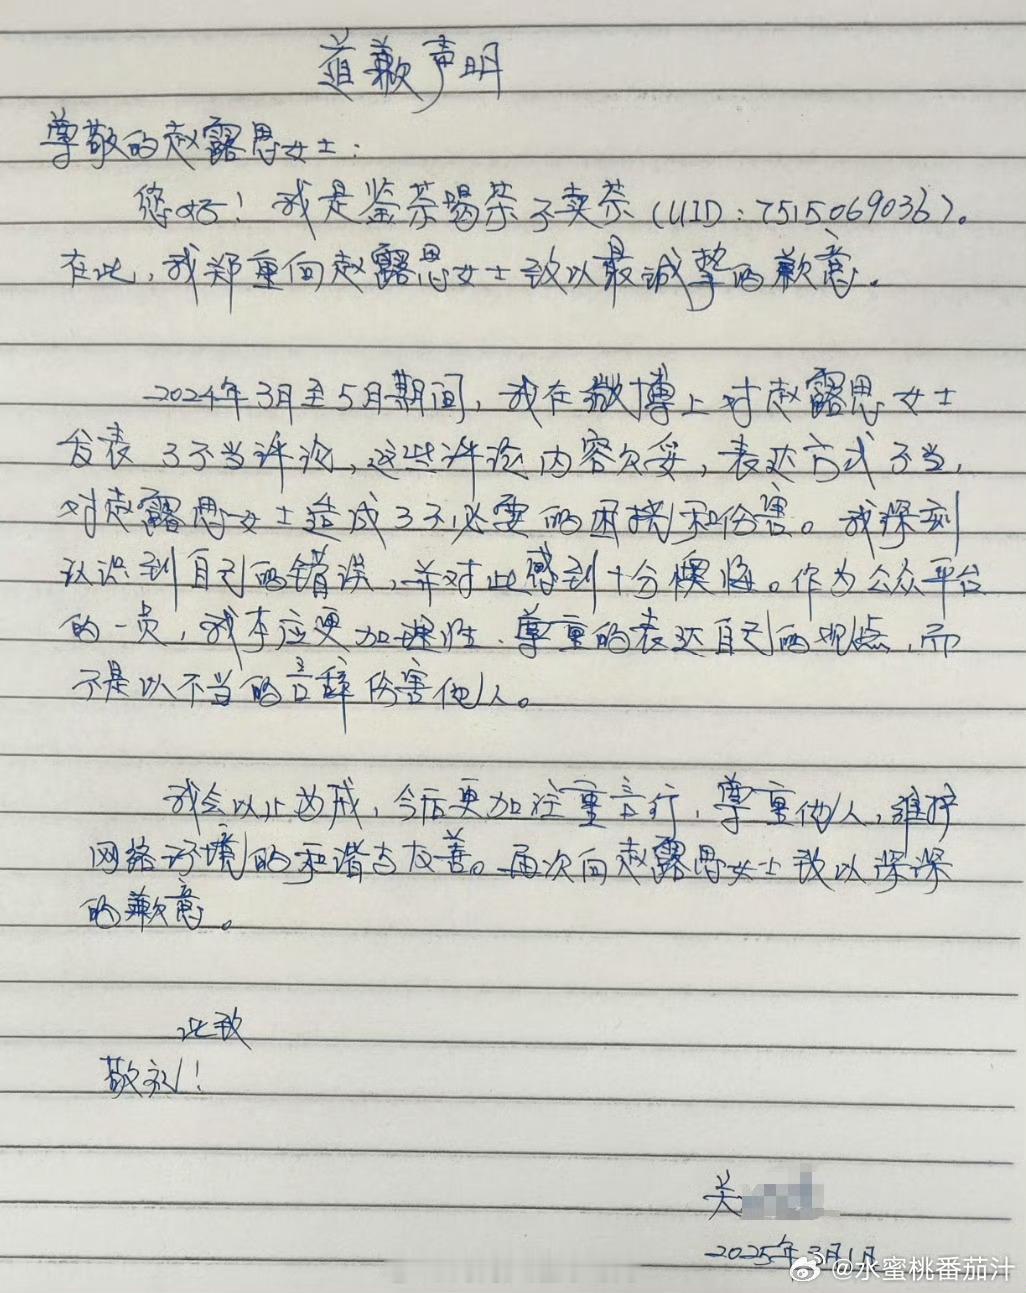 道歉声明
尊敬的赵露思女士:
您好!我是鉴茶喝茶不卖茶(UID:7515069036)。
在此,我郑重向赵露思女士致以最诚挚的歉意。
2024年3月至5月期间,我在微博上对赵露思女士
发表了不当评论,这些评论内容欠妥,表达方式不当,
对赵露思女士造成了不必要的困扰和伤害。我深刻
认识到自己的错误,并对此感到十分懊悔。作为公众平台
的一员,我本应更加理性、尊重的表达自己的观点,而
不是以不当的言辞伤害他人。
我会以此为戒,今后更加注重言行,尊重他人,维护
网络环境的和谐与友善。再次向赵露思女士致以深深
的歉意。
此致
敬礼!
关
2025年3月1日
@水蜜桃番茄汁